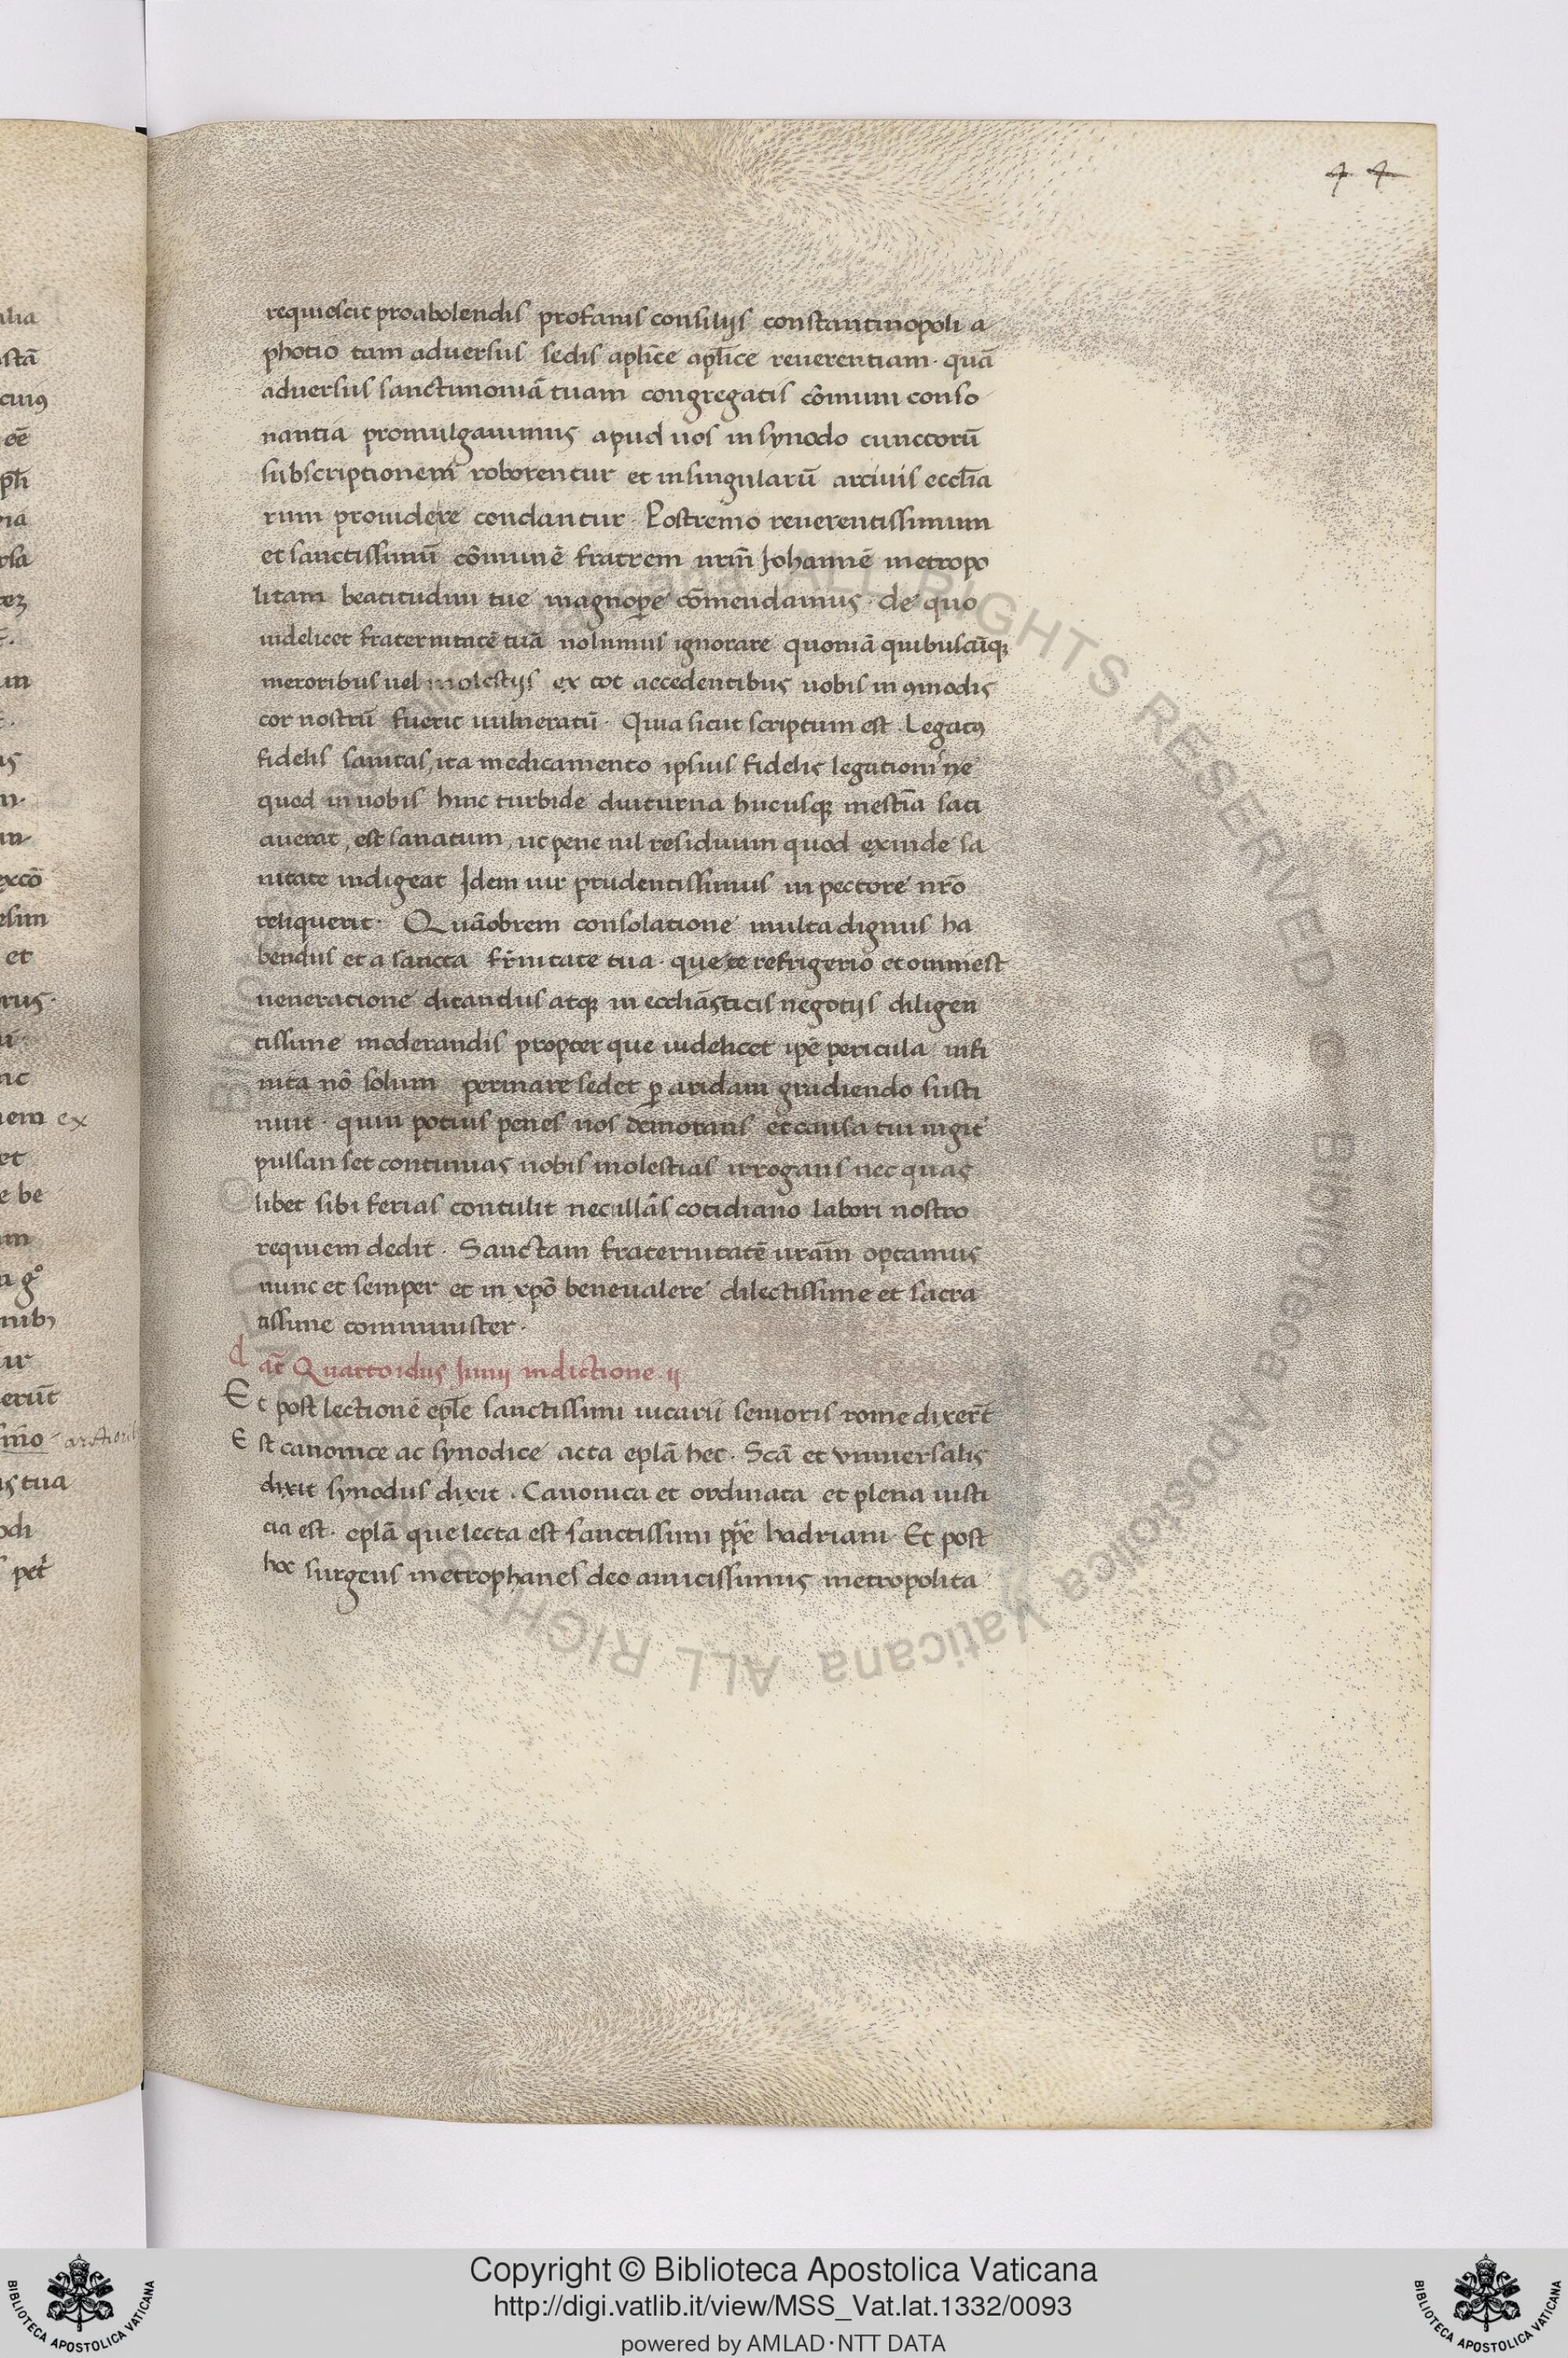 44
requiescit proabolendis profanis consilijs constantinopoli a
photio tam aduersus sedis aplice aplice reuerentiam · quā
aduersus sanctimoniā tuam congregatis cōmuni conso
nantia promulgauimus apud uos in synodo cunctorū
subscriptionem roborentur et insingularū arciuis ecclīa
rum prouidere condantur · Postremo reuerentissimum
et sanctissimū cōmunē fratrem nrm̄ Johannē metropo
litam beatitudini tue magnopere cōmendamus · de quo
uidelicet fraternitatē tuā uolumus ignorare quoniā quibuscūq;
meroribus uel molestijs ex tot accedentibus nobis in 9modis
cor nostrū fuerit uulneratū · Quia sicut scriptum est · Legat9
fidelis sanitas, ita medicamento ipsius fidelis legationis ne
quod in nobis hinc turbide diuturna hucusq; mestīa saci
auerat, est sanatum, ut pene nil residuum quod exinde sa
nitate indigeat Idem uir prudentissimus in pectore nrō
reliquerit · Quāobrem consolatione multa dignus ha
bendus et a sancta fr̄nitate tua · que te refrigerio et omni est
ueneratione ditandus atq; in eccliāsticis negotijs diligen
tissime moderandis propter que uidelicet ipē pericula infi
nita nō solum permare sedet p aridam gradiendo susti
nuit · quin potius penes nos demorans et causa tui iugit
pulsan set continuas nobis molestias irrogans nec quas
libet sibi ferias contulit nec ullās cotidiano labori nostro
requiem dedit · Sanctam fraternitatē uram̄ optamus
nunc et semper et in xpō beneualere dilectissime et sacra
tissime comminister ·
d at̄ Quarto idus Junij indictione ij
Et post lectionē eple sanctissimi uicarii senioris rome dixerūt
Est canonice ac synodice acta eplā hec · Scā et vniuersalis
dixit synodus dixit · Canonica et ordinata et plena iusti
cia est · eplā que lecta est sanctissimi ppe hadriani · Et post
hoc surgens metrophanes deo amicissimus metropolita
Copyright © Biblioteca Apostolica Vaticana
http://digi.vatlib.it/view/MSS_Vat.lat.1332/0093
powered by AMLAD·NTT DATA
BIBLIOTECA APOSTOLICA VATICANA
BIBLIOTECA APOSTOLICA VATICANA